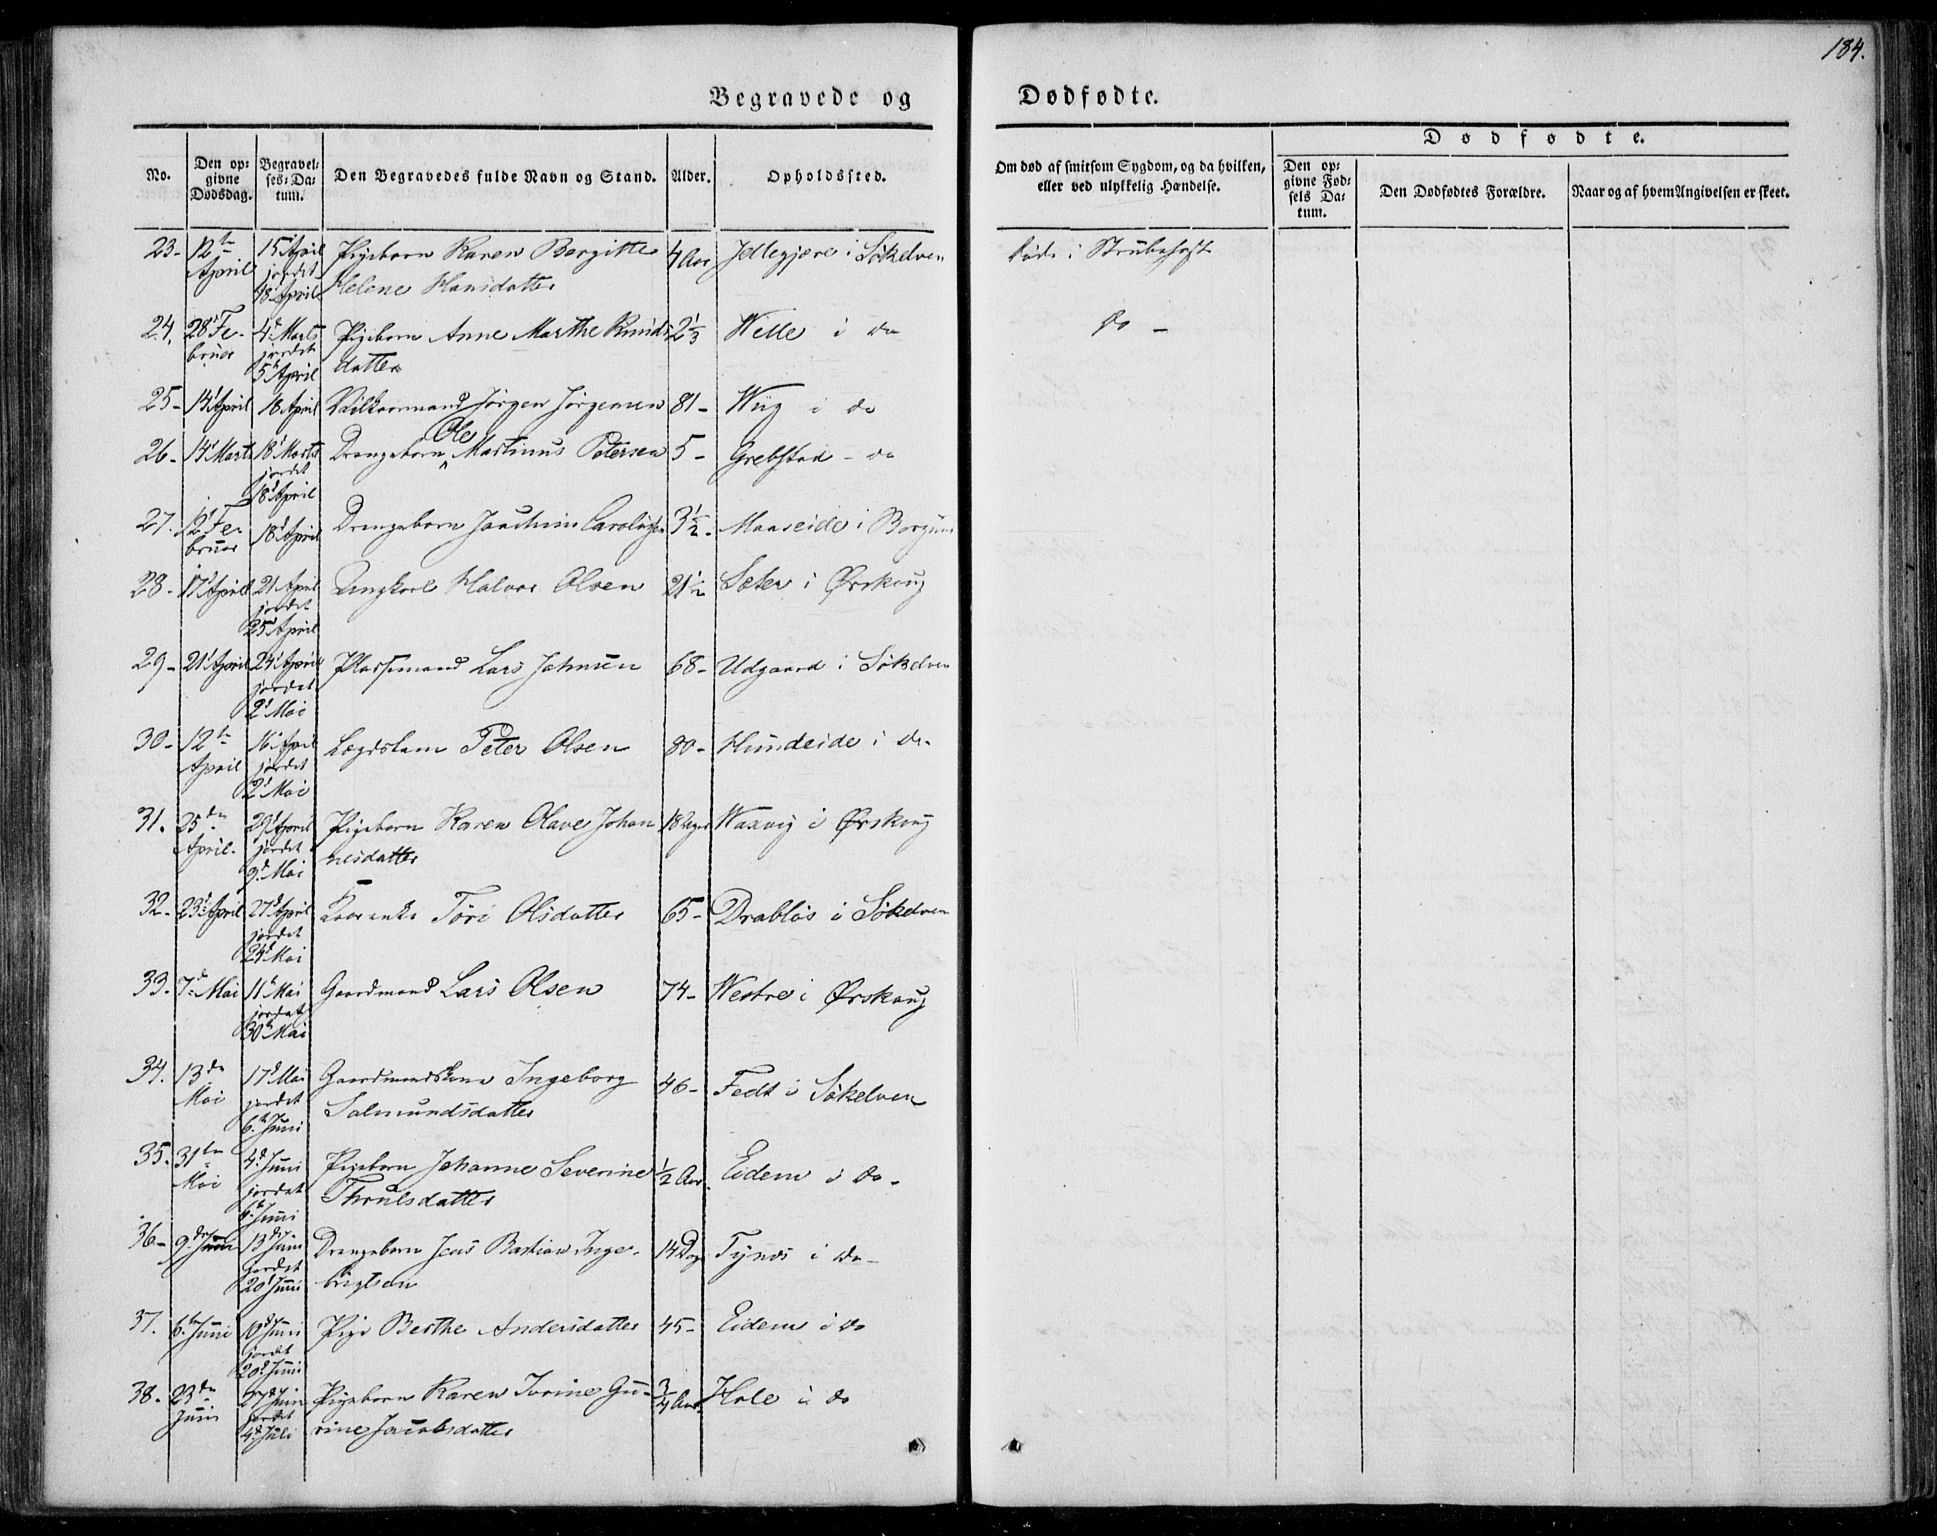 184.
Begravede og Dødfødte.
No.
Den opgivne Dødsdag.
Begravelses-Datum.
Den Begravedes fulde Navn og Stand.
Alder.
Opholdssted.
Om død af smitsom Sygdom, og da hvilken, eller ved ulykkelig Hændelse.
Dødfødte.
Den opgivne Fødsels Datum.
Den Dødfødtes Forældre.
Naar og af hvem Angivelsen er skeet.
23- 12te April 15 April jordet 18 April Pigebarn Karen Bergitte Helene Hansdatter 4 Aar Jellegjære i Søkelven Døde i Strubehoste
24. 28 Februar 4d Marts jordet 5te April Pigebarn Anne Marthe Knudsdatter 2 1/3 Welle i do do -
25- 14 April 18 April Vilkaarmand Jørgen Jørgensen 81- Wiig i do
26- 14 Marts 18 Marts jordet 18 April Drengebarn Ole Martinus Petersen 5- Grebstad - do
27. 12 Februar 18 April Drengebarn Joachim Carolusen 3 1/2. Maaseide i Borgund
28- 17 April 21 April jordet 25 April Ungkarl Halvor Olsen 21 1/2 Sæter i Ørskoug
29- 21 April 24 April jordet 2d Mai Pladsemand Lars Johnsen 68- Udgaard i Søkelven
30- 12te April 16 April jordet 2d Mai Lægdslem Peter Olsen 80- Hundeide i do.
31. 25de April. 29 April jordet 9d Mai Pigebarn Karen Olave Johannesdatter 18 Uger Waxvig i Ørskoug
32- 23d April 27d April jordet 24d Mai Kaarenke Töri Olsdatter 65- Drabløs i Søkelven
33. 7de Mai 11te Mai jordet 30te Mai Gaardmand Lars Olsen 74- Westre i Ørskoug
34. 13de Mai 17d Mai jordet 6te Juni Gaardmandskone Ingeborg Salmundsdatter 46- Fedt i Søkelven
35. 31te Mai 4d Juni jordet 6te Juni Pigebarn Johanne Severine Thrulsdatter 1/2 Aar. Eidem i do-
36- 9de Juni 13de Juni jordet 20d Juni Drengebarn Jens Bastian Ingebrigtsen 14 Dag Tynæs i do-
37. 6te Juni 10d Juni jordet 20d Juni Pige Berthe Andersdatter 45- Eidem i do
38. 23de Juni 27d Juni jordet 4d Juli Pigebarn Karen Ivrine Gurine Jacobsdatter 3/4 Aar. Hole i do